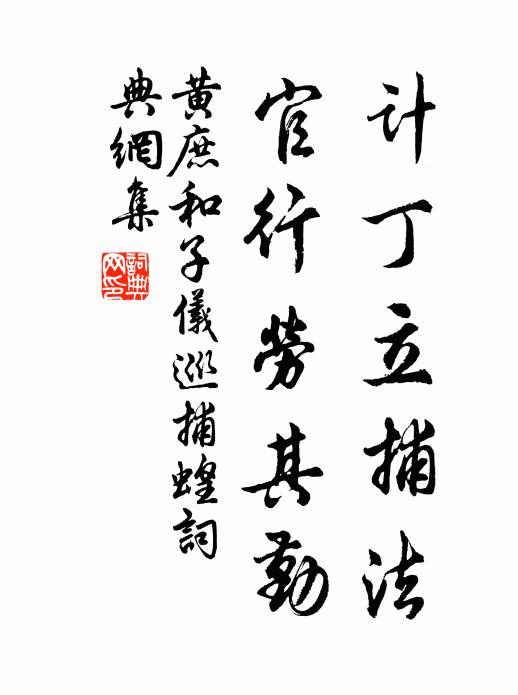 计丁立捕法
官行劳其勤
黄庶和子儀巡捕蝗詞
典網集
詞典网印